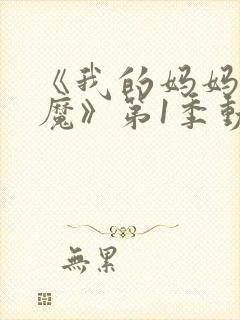 《我的妈妈
魔》第1季動
無果